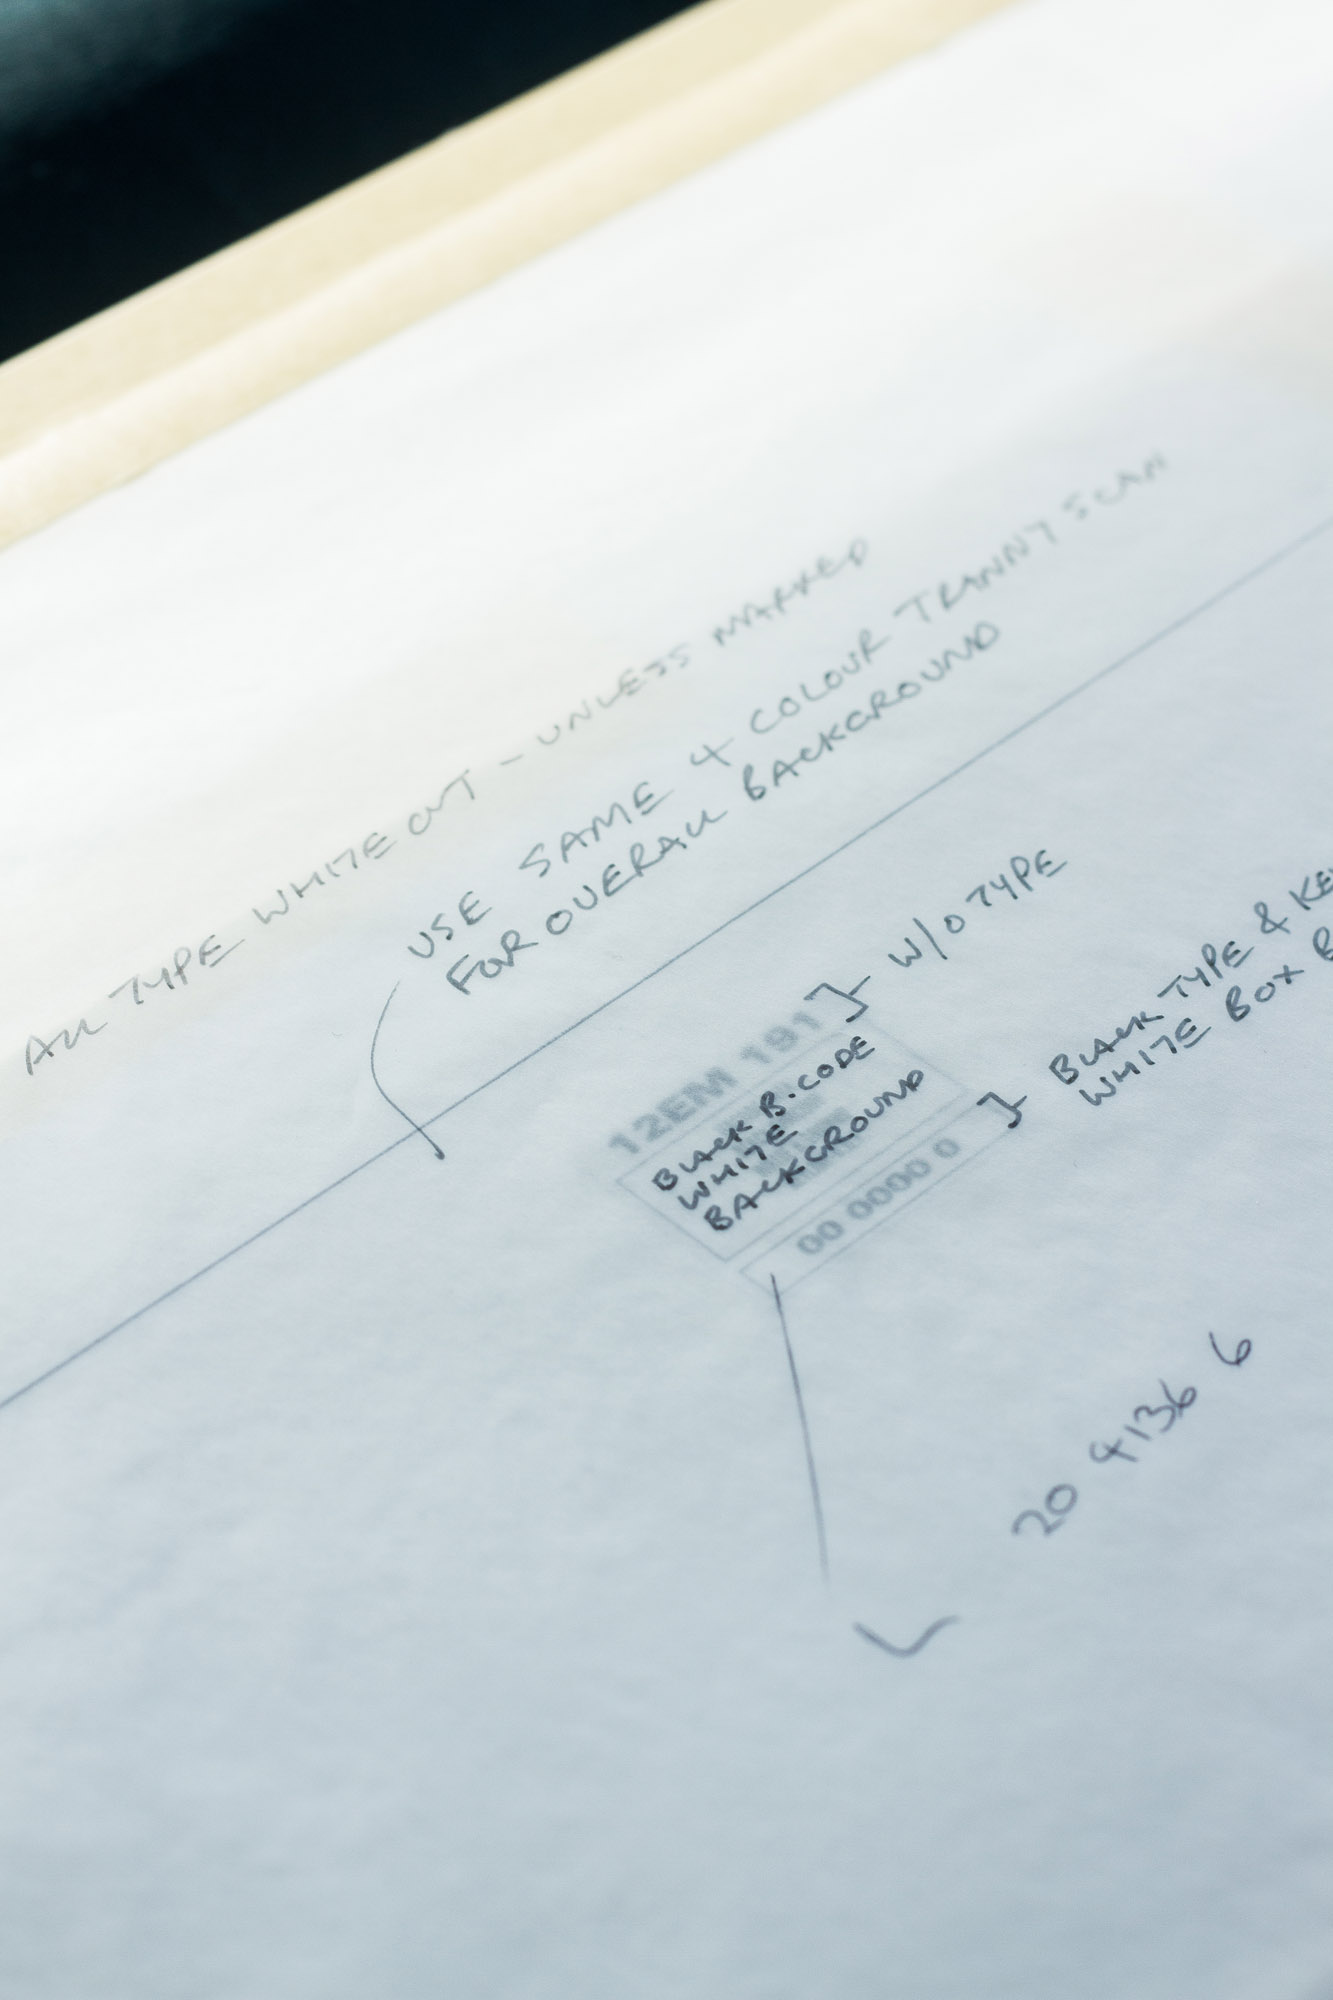 ALL TYPE WHITE OUT - UNLESS MARKED
USE SAME 4 COLOUR TRANNY SCAN
FOR OVERALL BACKGROUND
W/O TYPE
12EM 191
BLACK B.CODE
WHITE
BACKGROUND
00 0000 0
BLACK TYPE & KE
WHITE BOX B
20 4136 6